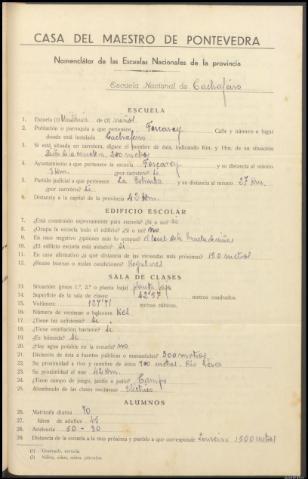 CASA DEL MAESTRO DE PONTEVEDRA
Nomenclátor de las Escuelas Nacionales de la provincia
Escuela Nacional de Cachafeiro
ESCUELA
1. Escuela (1) Unitaria de (2) niños
2. Población o parroquia a que pertenece Forcarey Calle y número o lugar
donde está instalada Cachafeiro
3. Si está situada en carretera, dígase el nombre de ésta, indicando Km. y Hm. de su situación
4. Ayuntamiento a que pertenece la escuela Forcarey y su distancia al mismo
3 Km. ¿por carretera? Si
5. Partido judicial a que pertenece La Estrada y su distancia al mismo 27 Km.
¿por carretera? Si
6. Distancia a la capital de la provincia 42 Km.
EDIFICIO ESCOLAR
7. ¿Está construido expresamente para escuela? ¿Sí o no? no
8. ¿Ocupa la escuela todo el edificio? ¿Sí o no? no
9. En caso negativo ¿quiénes más lo ocupan?
10. ¿El edificio escuela está aislado? Si
11. En caso afirmativo ¿a qué distancia de las viviendas más próximas?
12. ¿Reúne buenas o malas condiciones? Regulares
SALA DE CLASES
13. Situación (piso 1.º, 2.º o planta baja) planta baja
14. Superficie de la sala de clases 42'57 metros cuadrados.
15. Volúmen: 127'71 metros cúbicos.
16. Número de ventanas o balcones tres
17. ¿Tiene luz suficiente? Si
18. ¿Tiene ventilación bastante? Si
19. ¿Es húmeda? Si
20. ¿Hay agua potable en la escuela? no
21. Distancia de ésta a fuentes públicas o manantiales? 300 metros
22. Su proximidad a ríos y nombre de éstos
23. Su proximidad al mar 42 Km.
24. ¿Tiene campo de juego, jardín o patio? Campo
25. Alumbrado de las clases nocturnas Eléctrico
ALUMNOS
26. Matrícula diurna 90
27. Idem de adultos 45
28. Asistencia 60 - 30
29. Distancia de la escuela a la más próxima y pueblo a que corresponde 1.500 metros
(1) Graduada, unitaria.
(2) Niños, niñas, mixta, párvulos.